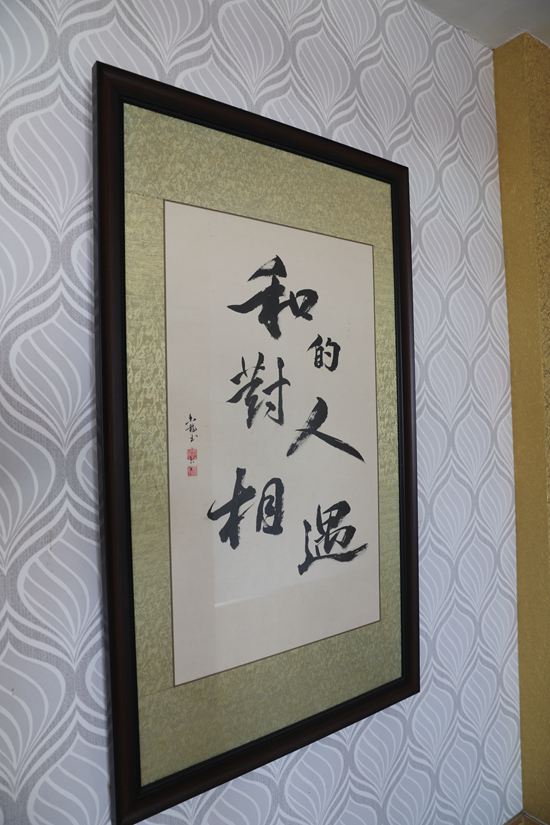 和對的人相遇